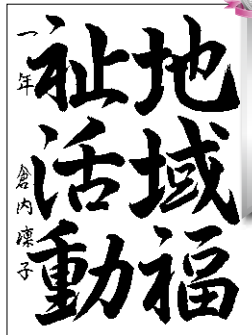 地域福
祉活動
一年 倉内凜子